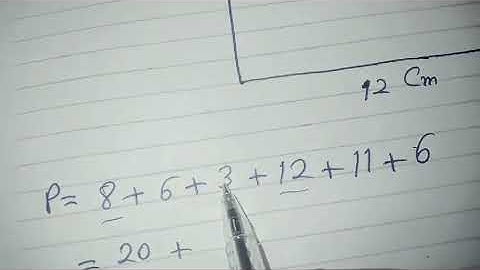 12 Cm
P= 8 + 6 + 3 + 12 + 11 + 6
= 20 +